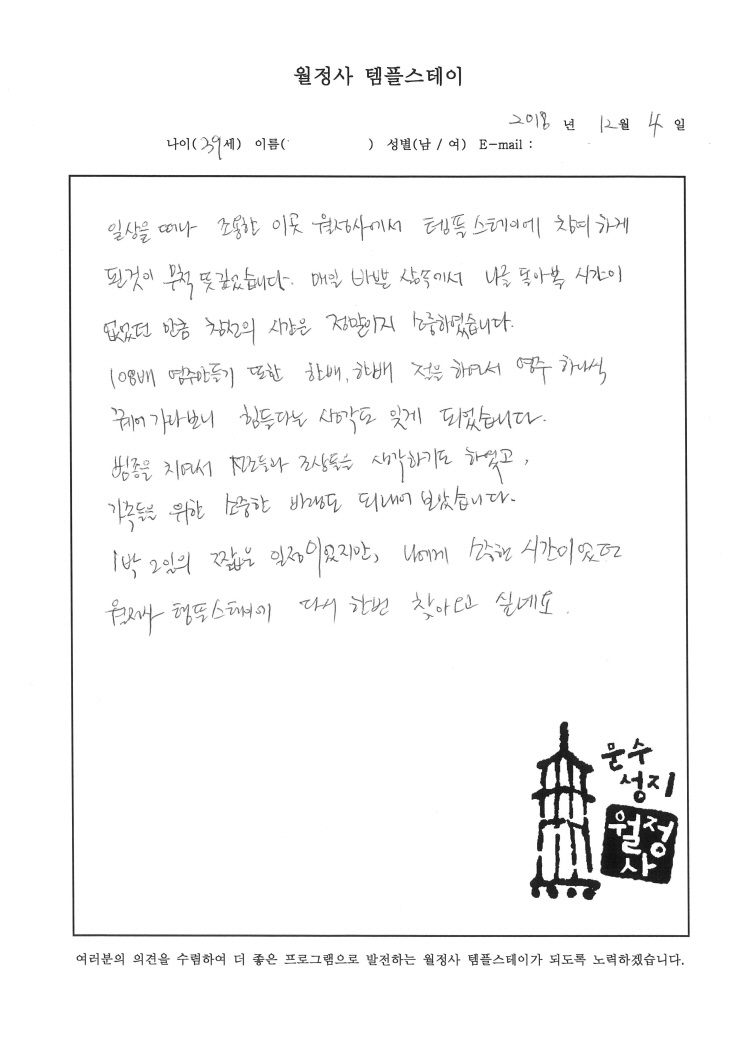 월정사 템플스테이
2018 년 12월 4 일
나이(39세) 이름( ) 성별(남 / 여) E-mail :
일상을 떠나 조용한 이곳 월정사에서 템플스테이에 참여하게
된것이 무척 뜻깊었습니다. 매일 바쁜 삶속에서 나를 돌아볼 시간이
없었던 만큼 참선의 시간은 정말이지 소중하였습니다.
108배 염주만들기 또한 한배, 한배 절을 하면서 염주 하나씩
꿰어가다보니 힘들다는 생각도 잊게 되었습니다.
범종을 치면서 선조들과 조상들을 생각하기도 하였고,
가족들을 위한 소중한 바램도 되내어 보았습니다.
1박 2일의 짧은 일정이였지만, 나에게 소중한 시간이였던
월정사 템플스테이에 다시 한번 찾아오고 싶네요.
문수
성지
월정
사
여러분의 의견을 수렴하여 더 좋은 프로그램으로 발전하는 월정사 템플스테이가 되도록 노력하겠습니다.